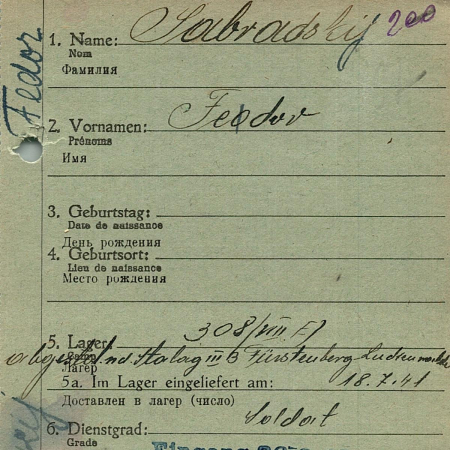 Fedor
1. Name: Sabradskij 200
Nom
Фамилия
2. Vornamen: Feodor
Prénoms
Имя
3. Geburtstag:
Date de naissance
День рождения
4. Geburtsort:
Lieu de naissance
Место рождения
5. Lager: 308/VIII E/
Camp
abgest. nd. Stalag III B Fürstenberg
Лагерь
5a. Im Lager eingeliefert am: 18.7.41
Доставлен в лагерь (число)
6. Dienstgrad: Soldat
Grade
Eingang